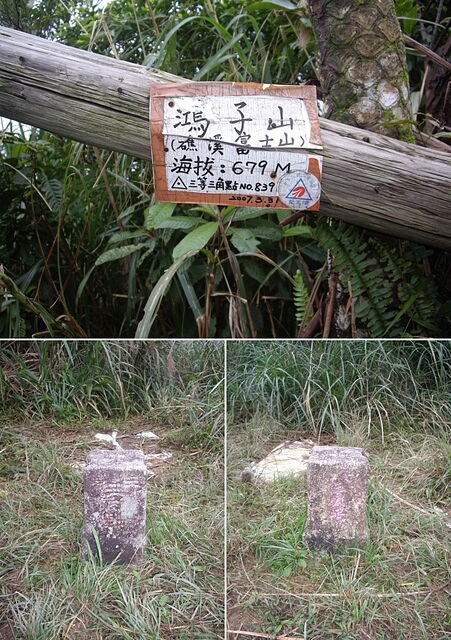 鴻子山
(礁溪富士山)
海拔:679M
三等三角點NO.839
2007.3.31